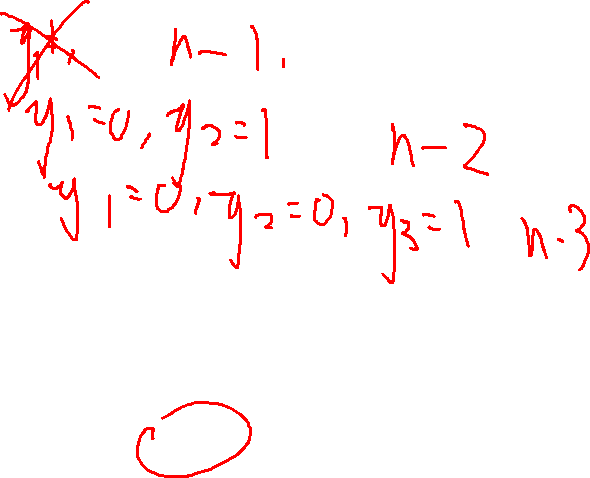 n-1.
y₁=0, y₂=1 n-2
y₁=0, y₂=0, y₃=1 n-3